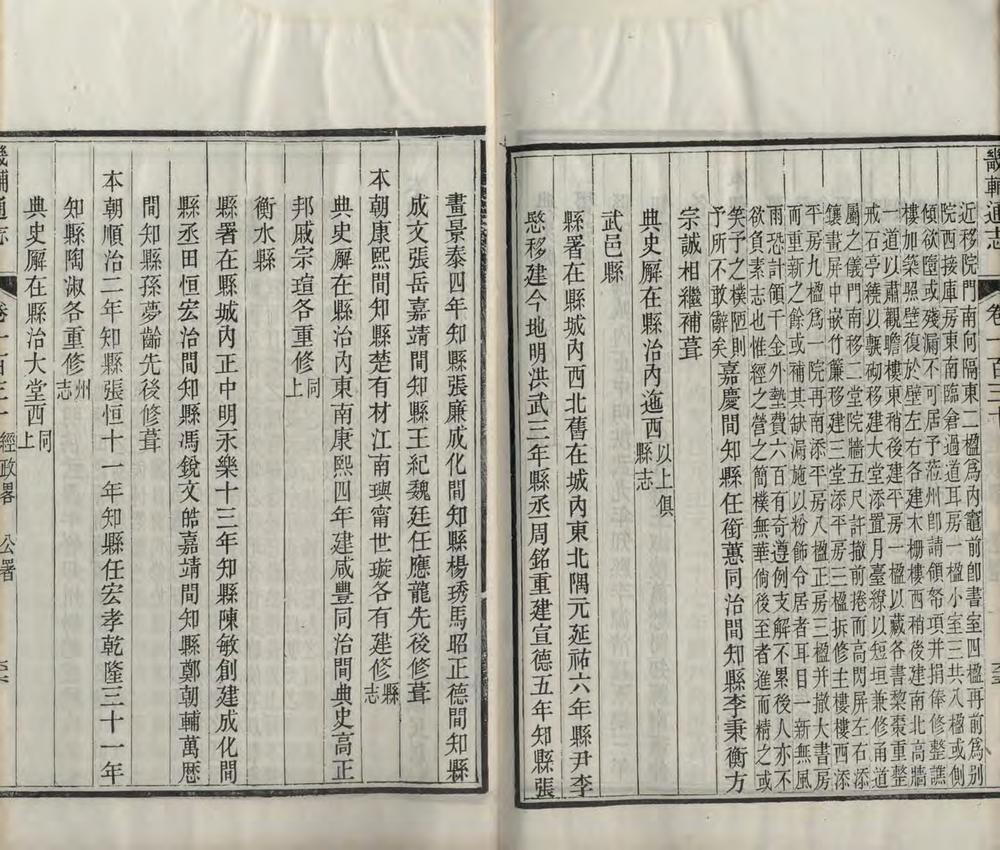 畿輔通志
卷一百三十
近移院門南向隔東二楹爲内竈前卽書室四楹再前爲別
院西接庫房東南臨倉過道耳房一楹小室三共八楹或側
傾欲墮或殘漏不可居予蒞州卽請領帑項并捐俸修整譙
樓加築照壁復於壁左右各建木柵樓西稍後建南北高牆
一道以肅觀瞻樓東稍後建平房一楹以藏各書黎棗重整
戒石亭繞以甎砌移建大堂添置月臺繚以短垣兼修甬道
屬之儀門南移二堂院牆五尺許撤前捲而高閃屏左右添
鑲書屏中嵌竹簾移建三堂添平房三楹拆修主樓樓西添
平房九楹爲一院再南添平房八楹正房三楹并撤大書房
而重新之餘或補其缺漏施以粉飾令居者耳目一新無風
雨恐計領千金外墊費六百有奇遵例支解不累後人亦不
欲負素志也惟經之營之簡樸無華倘後至者進而精之或
矣予之樸陋則嘉慶間知縣任銜蕙同治間縣李秉衡方
予所不敢辭矣
宗誠相繼補葺
典史廨在縣治内迤西以上俱
縣志
武邑縣
縣署在縣城内西北舊在城内東北隅元延祐六年縣尹李
愍移建今地明洪武三年縣丞周銘重建宣德五年知縣張
畫景泰四年知縣張廉成化間知縣楊琇馬昭正德間知縣
成文張岳嘉靖間知縣王紀魏廷任應龍先後修葺
本朝康熙間知縣楚有材江南璵甯世璇各有建修縣
志
典史廨在縣治内東南康熙四年建咸豐同治間典史高正
邦戚宗瑄各重修同
上
衡水縣
縣署在縣城内正中明永樂十三年知縣陳敏創建成化間
縣丞田恒宏治間知縣馮銳文皓嘉靖間知縣鄭朝輔萬厯
間知縣孫夢齡先後修葺
本朝順治二年知縣張恒十一年知縣任宏孝乾隆三十一年
知縣陶淑各重修州
志
典史廨在縣治大堂西同
上
畿輔通志
經政畧 公署